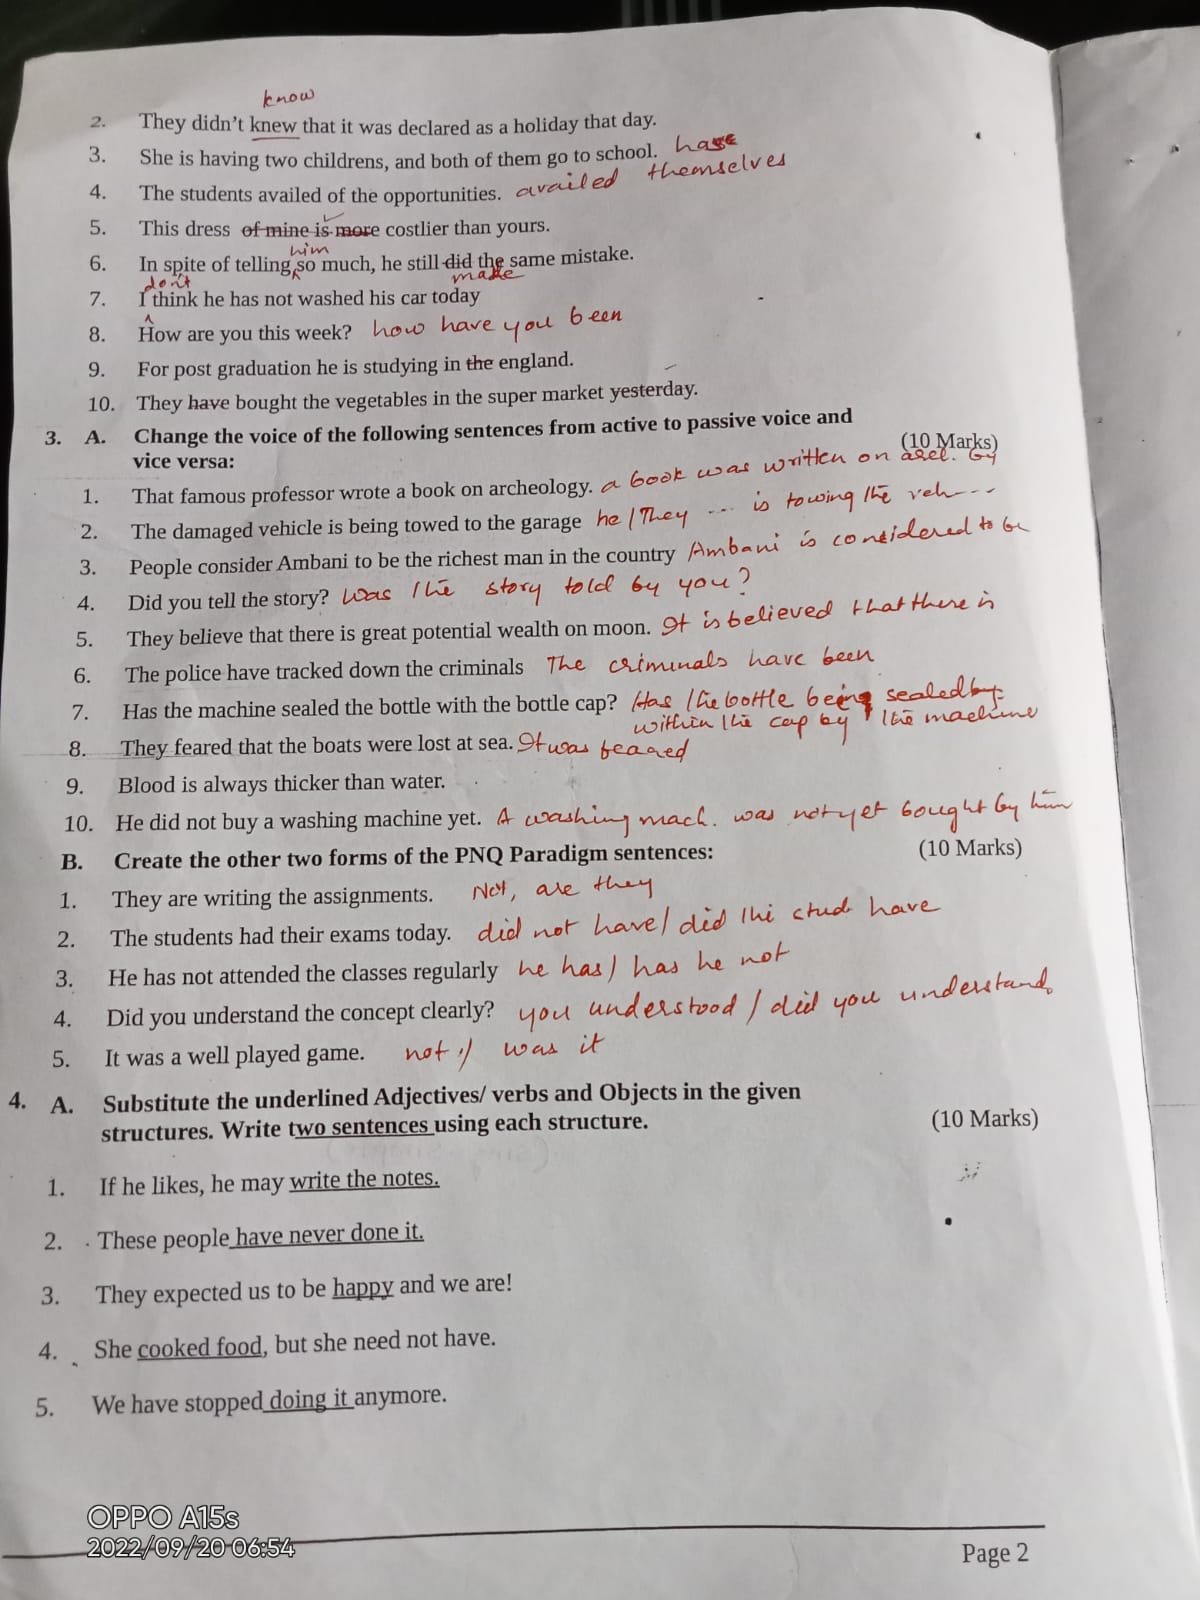 know
2. They didn't knew that it was declared as a holiday that day.
3. She is having two childrens, and both of them go to school. have
4. The students availed of the opportunities. availed themselves
5. This dress of mine is more costlier than yours.
him
6. In spite of telling so much, he still did the same mistake.
don't make
7. I think he has not washed his car today
8. How are you this week? how have you been
9. For post graduation he is studying in the england.
10. They have bought the vegetables in the super market yesterday.
3. A. Change the voice of the following sentences from active to passive voice and
vice versa: (10 Marks)
1. That famous professor wrote a book on archeology. a book was written on by
2. The damaged vehicle is being towed to the garage he / They --- is towing the veh---
3. People consider Ambani to be the richest man in the country Ambani is considered to be
4. Did you tell the story? Was the story told by you?
5. They believe that there is great potential wealth on moon. It is believed that there is
6. The police have tracked down the criminals The criminals have been
7. Has the machine sealed the bottle with the bottle cap? Has the bottle being sealed by
the cap by the machine
8. They feared that the boats were lost at sea. It was feared
9. Blood is always thicker than water.
10. He did not buy a washing machine yet. A washing mach. was not yet bought by him
B. Create the other two forms of the PNQ Paradigm sentences: (10 Marks)
1. They are writing the assignments. Not, are they
2. The students had their exams today. did not have / did the stud have
3. He has not attended the classes regularly he has / has he not
4. Did you understand the concept clearly? you understood / did you understand.
5. It was a well played game. not // was it
4. A. Substitute the underlined Adjectives/ verbs and Objects in the given
structures. Write two sentences using each structure. (10 Marks)
1. If he likes, he may write the notes.
2. These people have never done it.
3. They expected us to be happy and we are!
4. She cooked food, but she need not have.
5. We have stopped doing it anymore.
OPPO A15s
2022/09/20 06:54
Page 2